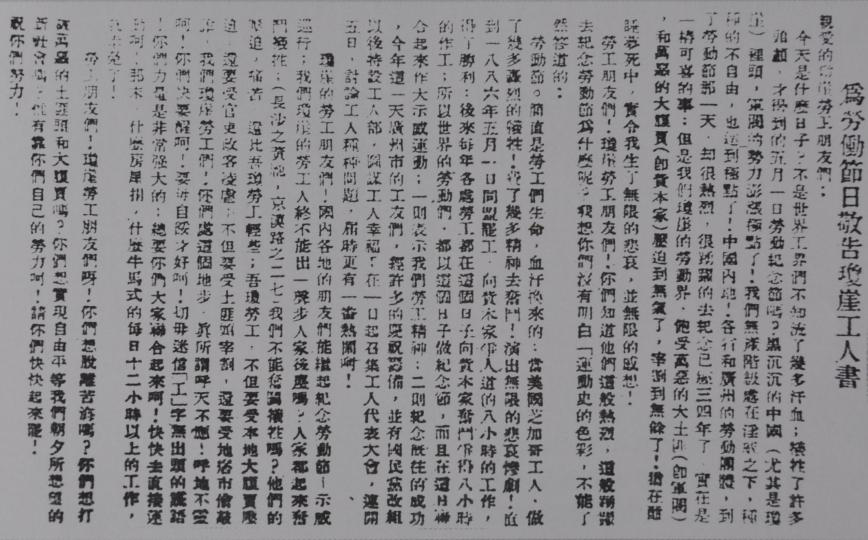 為勞働節日敬告瓊崖工人書
親愛的瓊崖勞工朋友們：
今天是什麼日子？不是世界工界們不知流了幾多汗血；犧牲了許多
頭顱，才得到的五月一日勞動紀念節嗎？黑沉沉的中國（尤其是瓊
崖）裡頭，軍閥的勢力膨漲極點了！我們無產階級處在淫威之下，種
種的不自由，也達到極點了！中國內地！各行和廣州的勞動團體，到
了勞動節那一天，却很熱烈，很踴躍的去紀念已經三四年了，實在是
一樁可喜的事；但是我們瓊崖的勞動界，飽受萬惡的大土匪（卽軍閥）
，和萬惡的大腹賈（卽資本家）壓迫到無氣了，宰割到無餘了！猶在醉
生夢死中，實令我生了無限的悲哀，並無限的感想！
勞工朋友們！瓊崖勞工朋友們！你們知道他們這般熱烈，這般踴躍
去紀念勞動節爲什麼呢？我想你們沒有明白「運動史的色彩，不能了
然答道的：
勞動節。簡直是勞工們生命，血汗換來的：當美國芝加哥工人，做
了幾多轟烈的犧牲！費了幾多精神去奮鬥！演出無限的悲哀慘劇！直
到一八八六年五月一日同盟罷工，向資本家爭人道的八小時的工作，
得了勝利；後來每年各處勞工都在這個日子向資本家奮鬥爭得八小時
的作工；所以世界的勞動們，都以這個日子做紀念節，而且在這日聯
合起來作大示威運動：一則表示我們勞工精神；二則紀念旣往的成功
，今年這一天廣州市的工友們，經許多的慶祝籌備，並有國民黨改組
以後特設工人部，圖謀工人幸福？在一日起召集工人代表大會，連開
五日，討論工人種種問題，屆時更有一番熱鬧呵！
瓊崖的勞工朋友們！國內各地的朋友們能繼起紀念勞動節——示威
運行；我們瓊崖的勞工人終不能出一聲步人家後塵嗎？人家都起來奮
鬥犧牲；（長沙之資慘，京漢路之二七）我們不能奮鬥犧牲嗎？他們的
壓迫，痛苦，還比吾瓊勞工輕些；吾瓊勞工，不但要受本地大腹賈壓
迫；還要受官吏政客凌虐；不但要受土匪頭宰割，還要受地痞市儈敲
詐；我們瓊崖勞工們！你們處這個地步，眞所謂呼天不應！呼地不靈
呵！你們快要醒呵！要每自醒才好呵！切毋迷信「工」字無出頭的讖語
！你們力量是非常強大的；趁要你們大家聯合起來啊！快快去直接運
動呵！那末，什麼房屋捐，什麼牛馬式的每日十二小時以上的工作，
勞工朋友們！瓊崖勞工朋友們呀！你們想脫離苦海嗎？你們想打
新社會嗎？惟有靠你們自己的勞力呵！請你們快快起來罷！
祝你們努力！